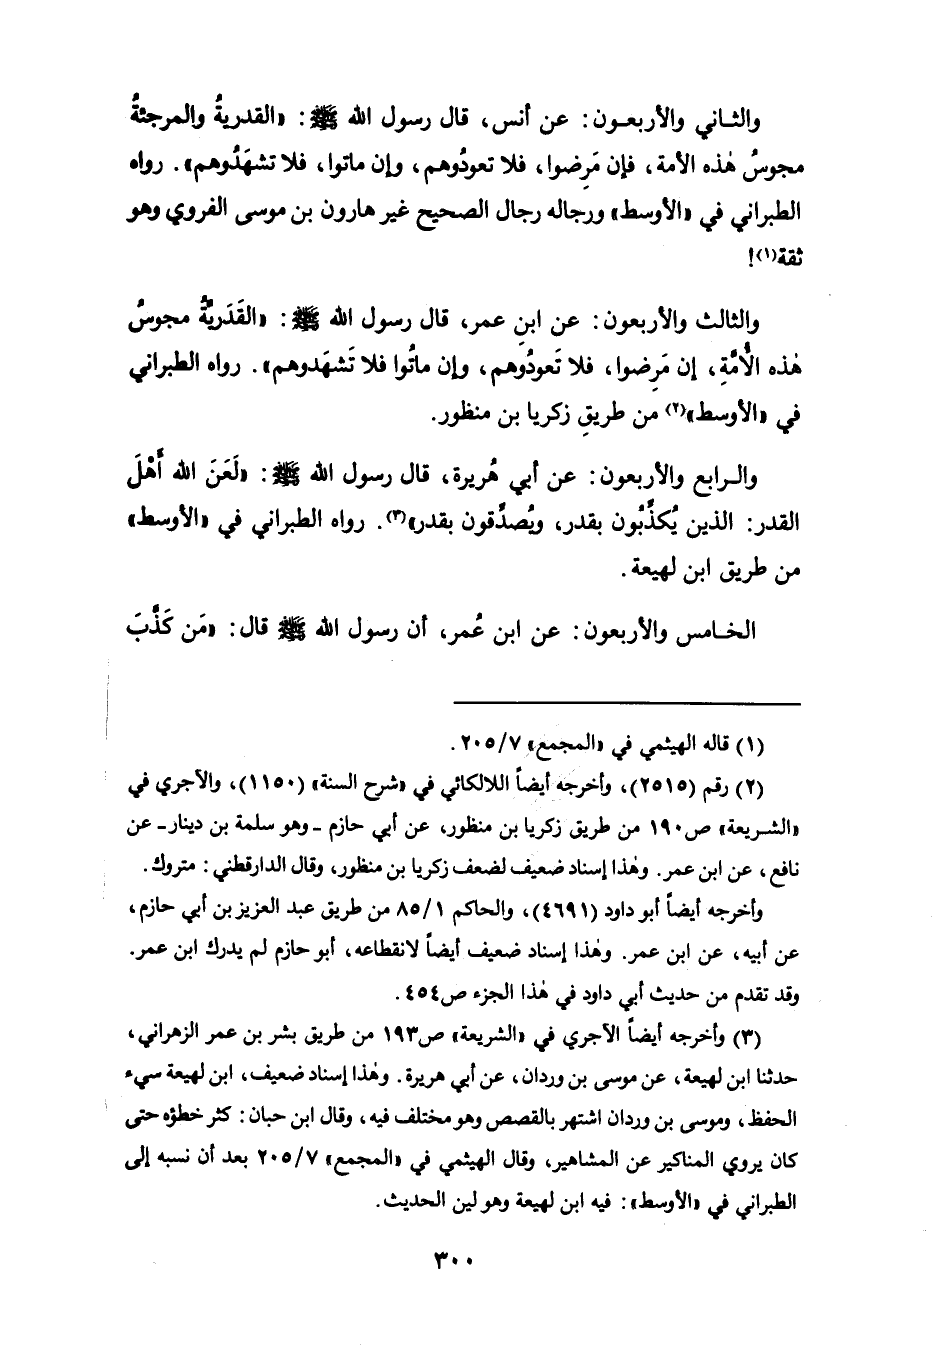 والثـاني والأربعـون: عن أنس، قال رسول الله ﷺ: «القدريةُ والمرجئةُ
مجوسُ هٰذه الأمة، فإن مَرِضوا، فلا تعودُوهم، وإن ماتوا، فلا تشهَدُوهم». رواه
الطبراني في «الأوسط» ورجاله رجال الصحيح غير هارون بن موسى الفروي وهو
ثقة(١)!
والثالث والأربعون: عن ابنِ عمر، قال رسول الله ﷺ: «القَدَرِيَّةُ مجوسُ
هٰذه الأُمَّةِ، إن مَرِضوا، فلا تَعودُوهم، وإن ماتُوا فلا تَشهَدوهم». رواه الطبراني
في «الأوسط»(٢) من طريقِ زكريا بن منظور.
والـرابع والأربعون: عن أبي هُريرة، قال رسول الله ﷺ: «لَعَنَ الله أَهْلَ
القدر: الذين يُكذِّبُون بقدر، ويُصدِّقون بقدر»(٣). رواه الطبراني في «الأوسط»
من طريق ابن لهيعة.
الخـامس والأربعون: عن ابن عُمر، أن رسول الله ﷺ قال: «مَن كَذَّبَ
(١) قاله الهيثمي في «المجمع» ٢٠٥/٧.
(٢) رقم (٢٥١٥)، وأخرجه أيضاً اللالكائي في «شرح السنة» (١١٥٠)، والآجري في
«الشـريعة» ص١٩٠ من طريق زكريا بن منظور، عن أبي حازم ـ وهو سلمة بن دينار ـ عن
نافع، عن ابن عمر. وهٰذا إسناد ضعيف لضعف زكريا بن منظور، وقال الدارقطني: متروك.
وأخرجه أيضاً أبو داود (٤٦٩١)، والحاكم ٨٥/١ من طريق عبد العزيز بن أبي حازم،
عن أبيه، عن ابن عمر. وهٰذا إسناد ضعيف أيضاً لانقطاعه، أبو حازم لم يدرك ابن عمر.
وقد تقدم من حديث أبي داود في هٰذا الجزء ص٤٥٤.
(٣) وأخرجه أيضاً الآجري في «الشريعة» ص١٩٣ من طريق بشر بن عمر الزهراني،
حدثنا ابن لهيعة، عن موسى بن وردان، عن أبي هريرة. وهٰذا إسناد ضعيف، ابن لهيعة سيء
الحفظ، وموسى بن وردان اشتهر بالقصص وهو مختلف فيه، وقال ابن حبان: كثر خطؤه حتى
كان يروي المناكير عن المشاهير، وقال الهيثمي في «المجمع» ٢٠٥/٧ بعد أن نسبه إلى
الطبراني في «الأوسط»: فيه ابن لهيعة وهو لين الحديث.
٣٠٠